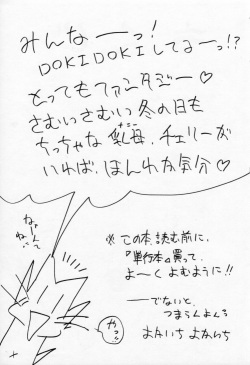 みんなーっ!
DOKIDOKIしてるーっ!?
とってもファンタジー♡
さむいさむい冬の日も
ちっちゃな乳母、チェリーが
いれば、ほんわか気分♡
※この本、読む前に、
『単行本』買って、
よ〜くよむように!!
——でないと、
つまらんよん